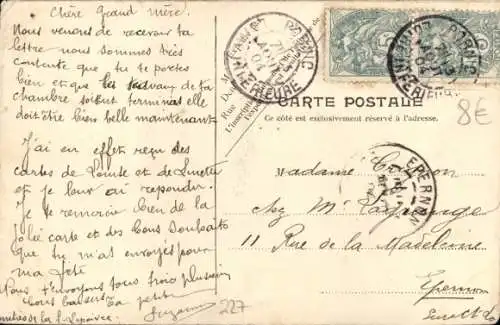 Chère Grand mère.
Nous venons de recevoir ta
lettre nous sommes très
contente que tu te portes
bien et que les travaux de ta
chambre soient terminés elle
doit être bien belle maintenant
J'ai en effet reçu des
cartes de Louise et de
et je leur ai repondu.
Je te remercie bien de la
jolie carte et des bons souhaits
que tu m'as envoyés pour
ma fête
Nous t'envoyons tous trois plusieurs
bons baisers ta petite
Suzanne
227
PORNIC
LOIRE INFÉRIEURE
CARTE POSTALE
Ce côté est exclusivement réservé à l'adresse.
8€
EPERNON
Madame
chez Mr
11 Rue de la Madeleine
Epernon
Eure et L